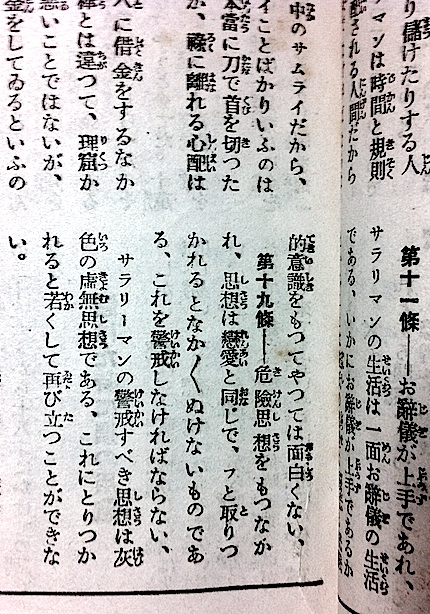 り儲けたりする人
マンは時間と規則
される人間だから
第十一條――お辭儀が上手であれ、
サラリマンの生活は一面お辭儀の生活
である、いかにお辭儀が上手であるか
中のサムライだから、
イことばかりいふのは
本當に刀で首を切つた
が、祿に離れる心配は
に借金をするなか
とは違つて、理窟か
いことではないが、
金をしてゐるといふの
的意識をもつてやつては面白くない、
第十九條――危險思想をもつなか
れ、思想は戀愛と同じで、フと取りつ
かれるとなか〱ぬけないものであ
る、これを警戒しなければならない、
サラリーマンの警戒すべき思想は灰
色の虚無思想である、これにとりつか
れると若くして再び立つことができな
い。